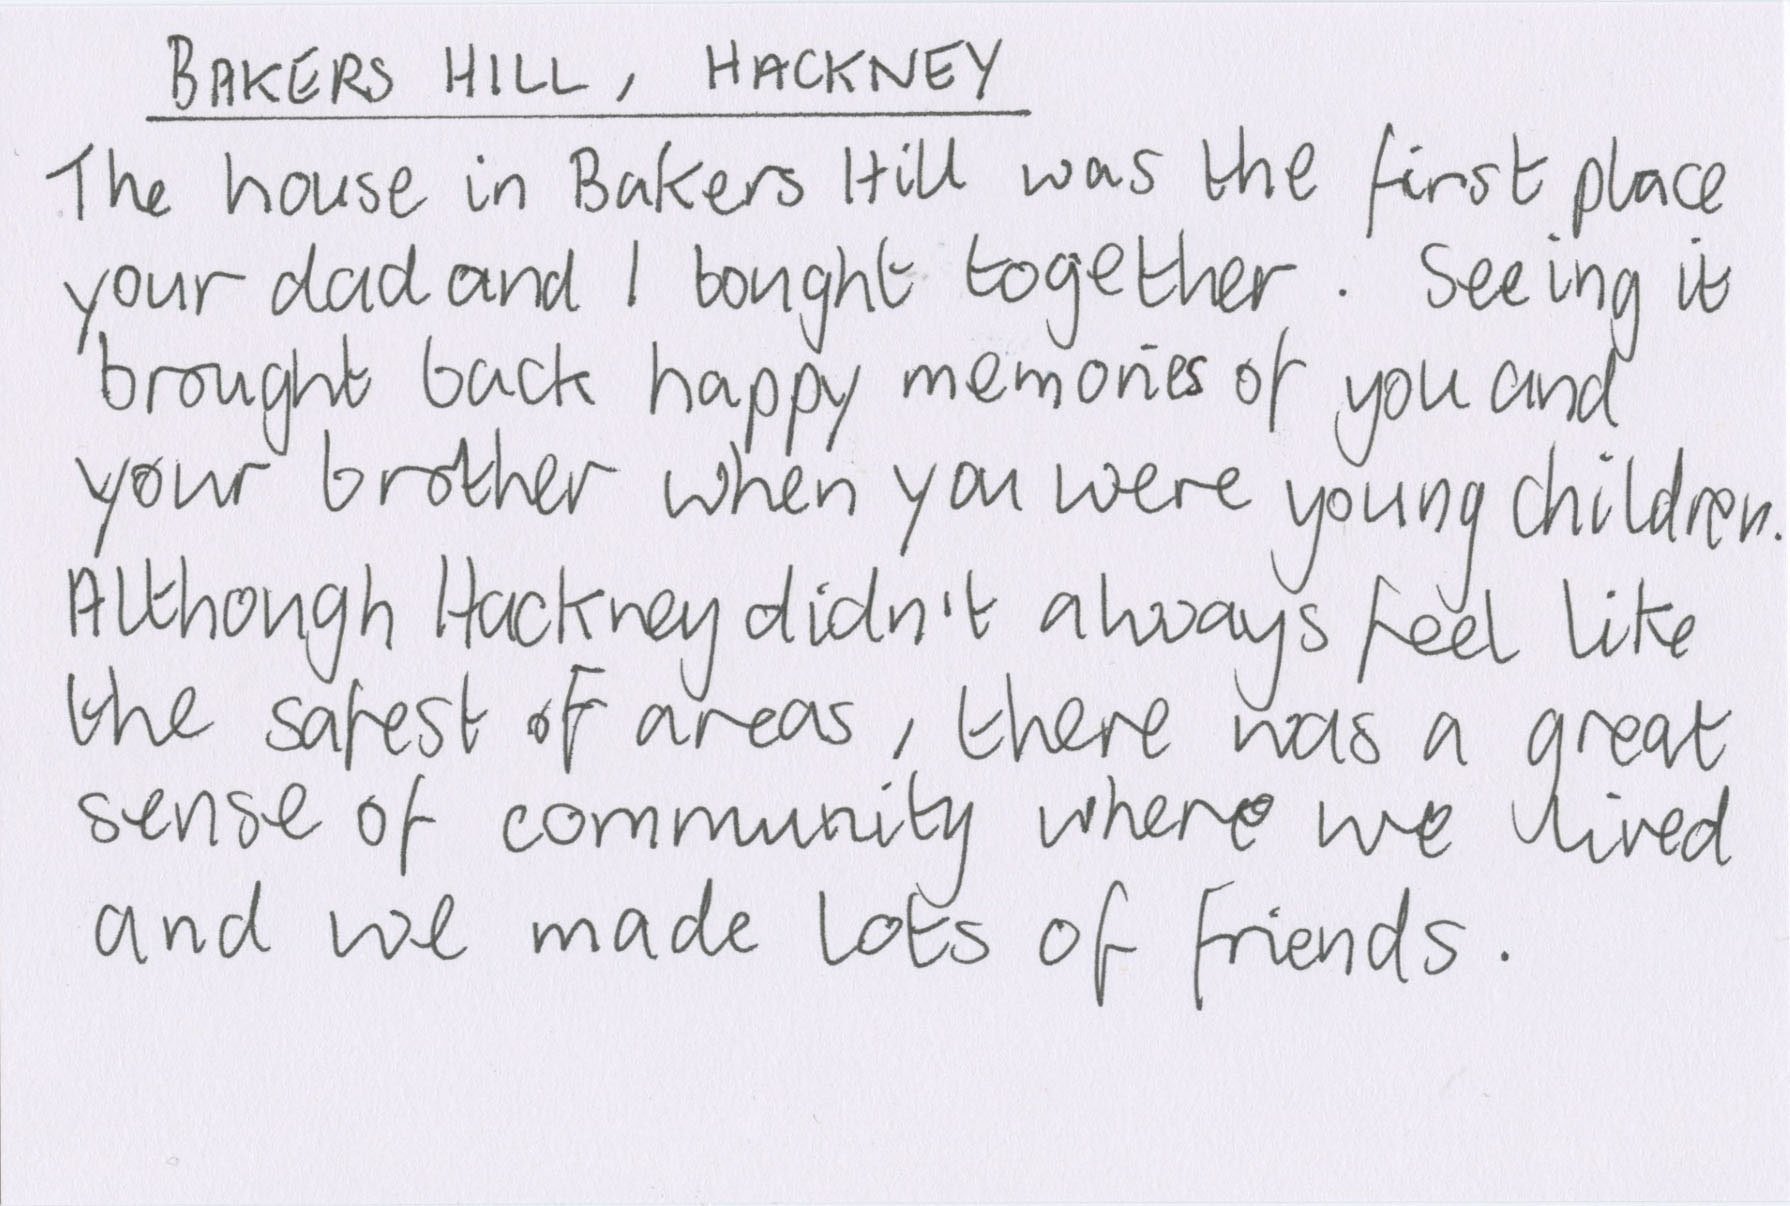 BAKERS HILL, HACKNEY
The house in Bakers Hill was the first place
your dad and I bought together. Seeing it
brought back happy memories of you and
your brother when you were young children.
Although Hackney didn't always feel like
the safest of areas, there was a great
sense of community where we lived
and we made lots of friends.